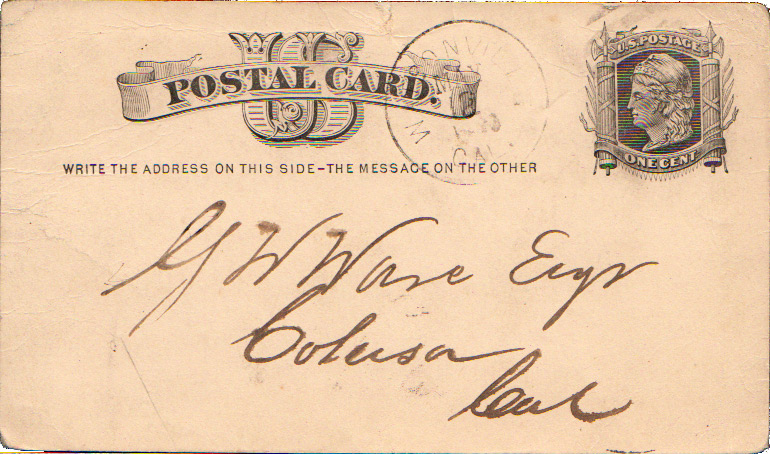 US
POSTAL CARD.
U.S. POSTAGE
ONE CENT
WRITE THE ADDRESS ON THIS SIDE–THE MESSAGE ON THE OTHER
CAL.
G W Ware Esqr
Colusa
Cal